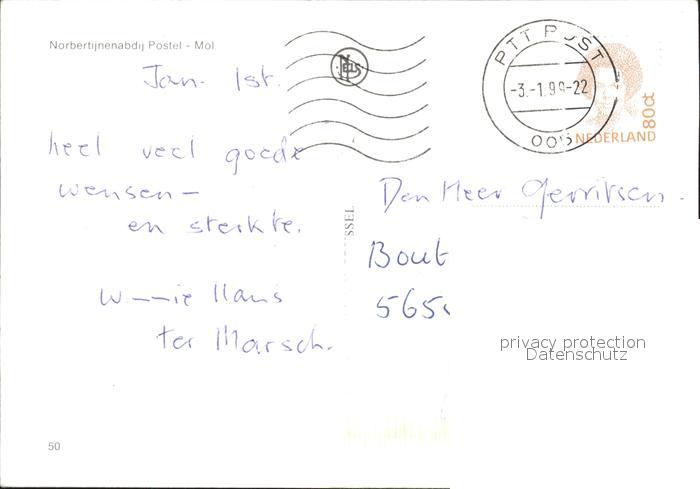 Norbertijnenabdij Postel - Mol
Jan. 1st.
heel veel goede
wensen -
en sterkte.
Hans
ter Marsch.
50
NELS
SSEL
PTT POST
-3.-1.99-22
005
80ct
NEDERLAND
Den Heer Gerritsen.
Bout
565
privacy protection
Datenschutz